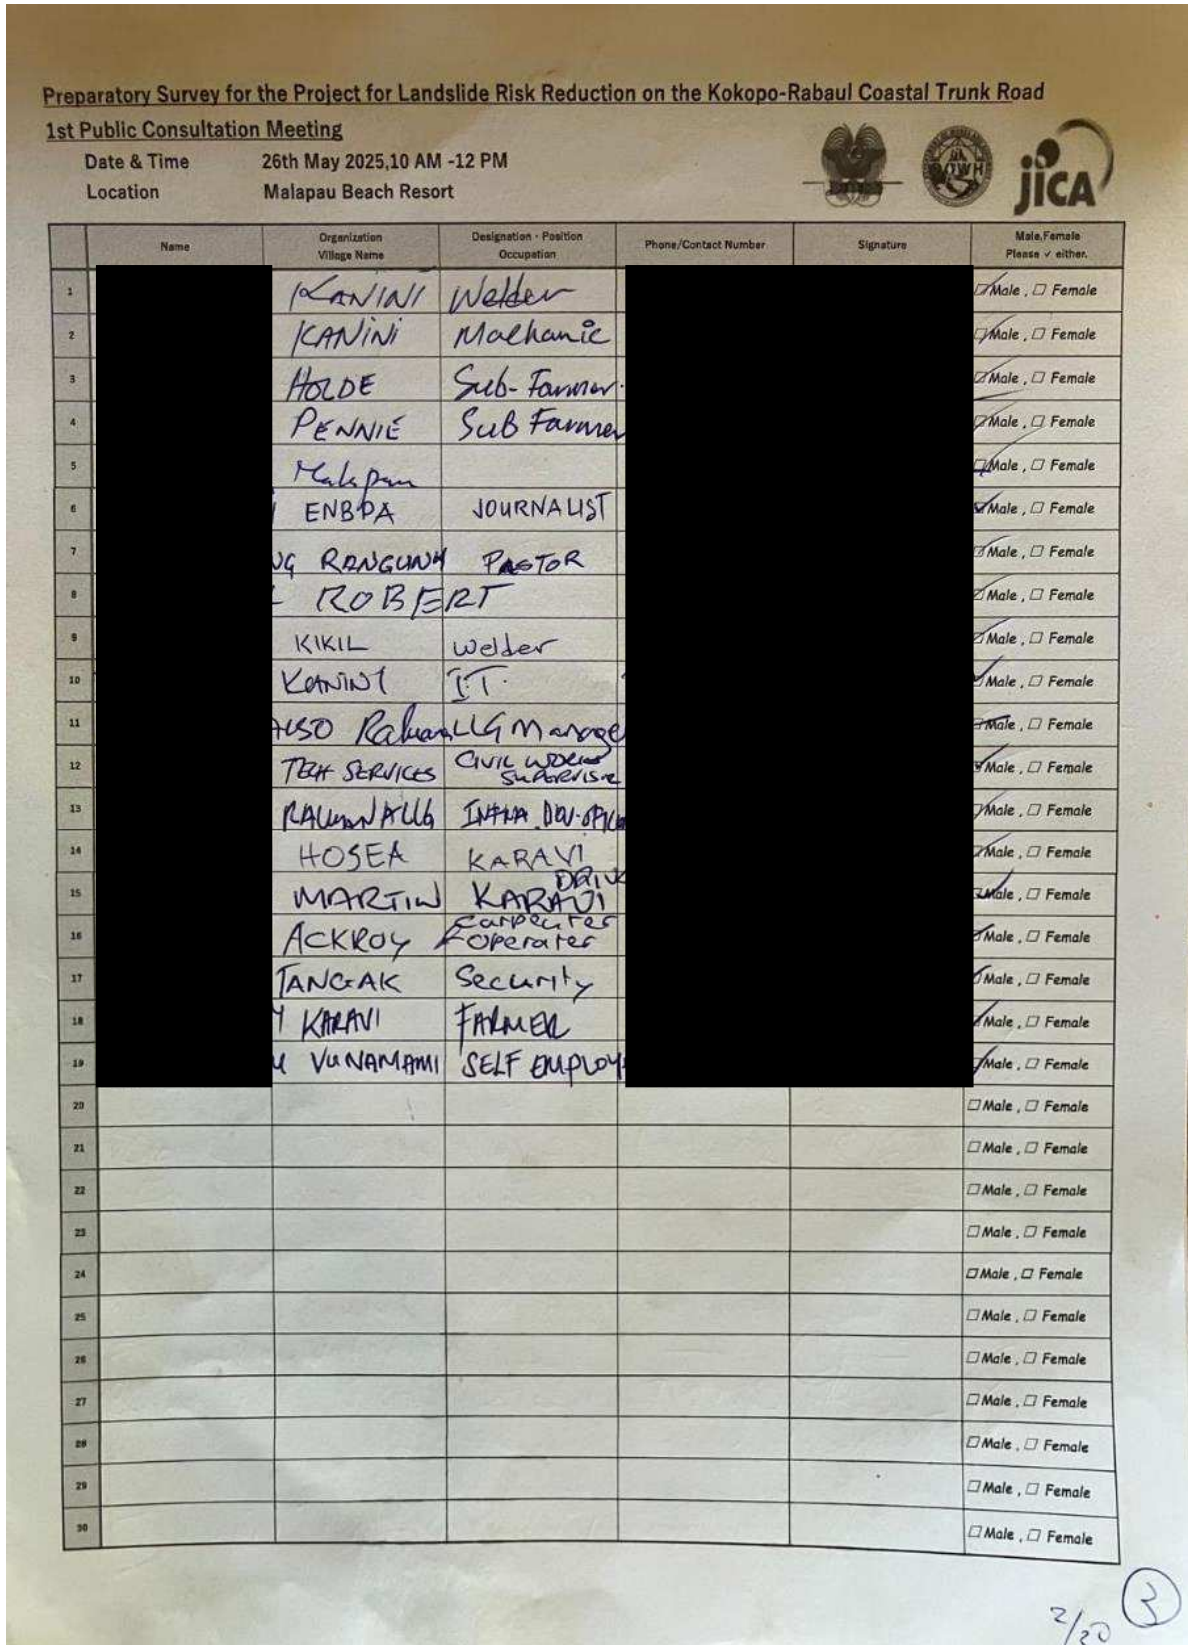 Preparatory Survey for the Project for Landslide Risk Reduction on the Kokopo-Rabaul Coastal Trunk Road
1st Public Consultation Meeting
Date & Time 26th May 2025,10 AM -12 PM
Location Malapau Beach Resort
JICA
Name Organization Village Name Designation · Position Occupation Phone/Contact Number Signature Male,Female Please ✓ either.
1 KANINI Welder Male , Female
2 KANINI Machanic Male , Female
3 HOLDE Sub-Farmer Male , Female
4 PENNIE Sub Farmer Male , Female
5 Malapau Male , Female
6 ENBPA JOURNALIST Male , Female
7 PASTOR Male , Female
8 ROBERT Male , Female
9 KIKIL Welder Male , Female
10 KANINI IT. Male , Female
11 LLG Manage Male , Female
12 TECH SERVICES CIVIL WORKS SUPERVISOR Male , Female
13 Male , Female
14 HOSEA KARAVI Male , Female
15 MARTIN KARAVI DRIV Male , Female
16 ACKROY Carpenter operater Male , Female
17 TANGAK Security Male , Female
18 KARAVI FARMER Male , Female
19 VUNAMAMI SELF EMPLOY Male , Female
20 Male , Female
21 Male , Female
22 Male , Female
23 Male , Female
24 Male , Female
25 Male , Female
26 Male , Female
27 Male , Female
28 Male , Female
29 Male , Female
30 Male , Female
2/20 3